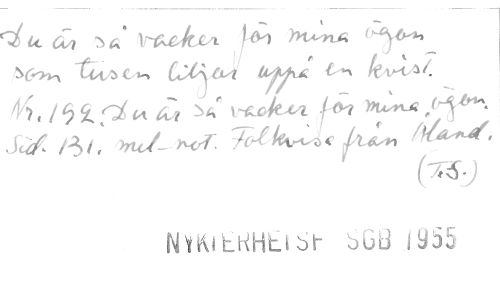 Du är så vacker för mina ögon
som tusen liljor uppå en kvist.
Nr. 192. Du är så vacker för mina ögon.
Sid. 131. mel-not. Folkvisa från Åland.
(T.S.)
NYKTERHETSF SGB 1955